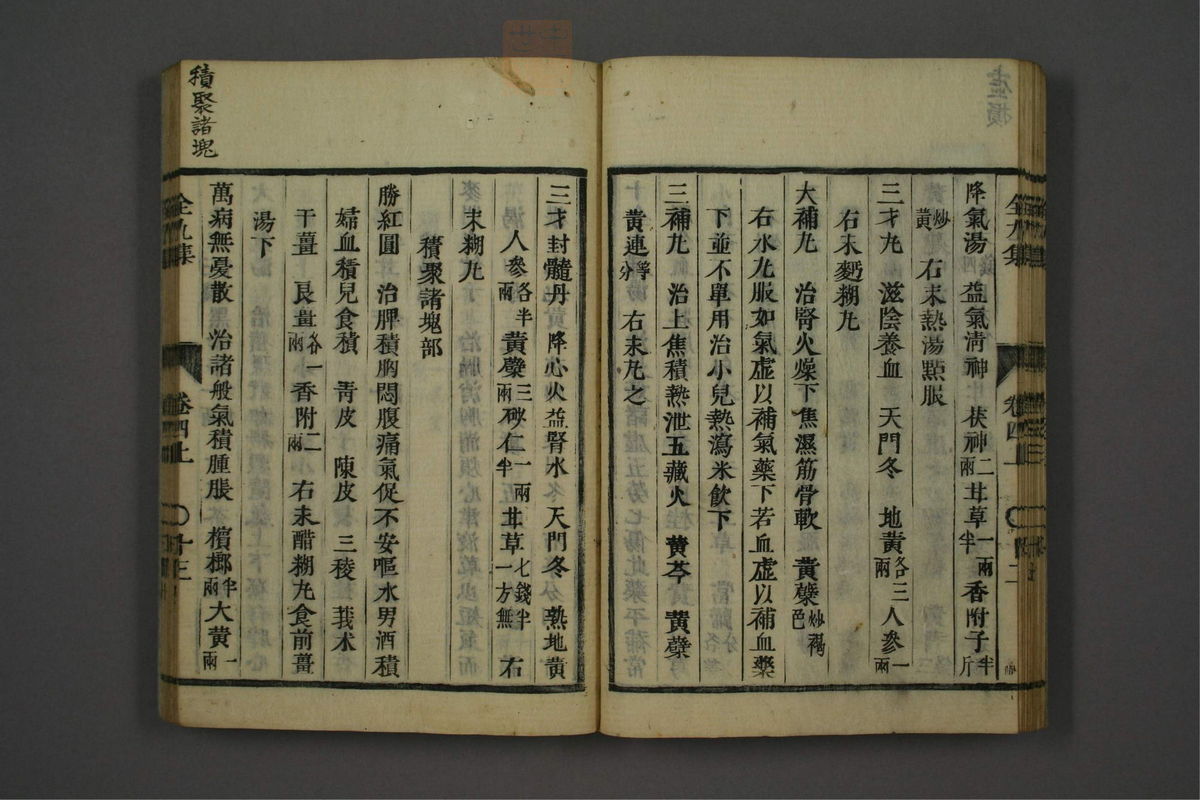 虚損
降氣湯 益氣清神 茯神二兩 甘草一兩半 香附子半斤
炒黄 右末熱湯㸃服
三才丸 滋陰養血 天門冬 地黄各三兩 人參一兩
右末麪糊丸
大補丸 治腎火燥下焦濕筋骨軟 黄蘗炒褐色
右水丸服如氣虚以補氣藥下若血虚以補血藥
下並不單用治小兒熱瀉米飲下
三補丸 治上焦積熱泄五藏火 黄芩 黄蘗
黄連等分 右末丸之
全九集
卷四上
積聚諸塊
三才封髓丹 降心火益腎水 天門冬 熟地黄
人參各半兩 黄蘗三兩 砂仁一兩半 甘草七錢半一方無 右
末糊丸
積聚諸塊部
勝紅圓 治脾積胸悶腹痛氣促不安嘔水男酒積
婦血積兒食積 青皮 陳皮 三稜 莪朮
干薑 良薑各一兩 香附二兩 右末醋糊丸食前薑
湯下
萬病無憂散 治諸般氣積腫脹 檳榔半兩 大黄一兩
全九集
卷四上
十三